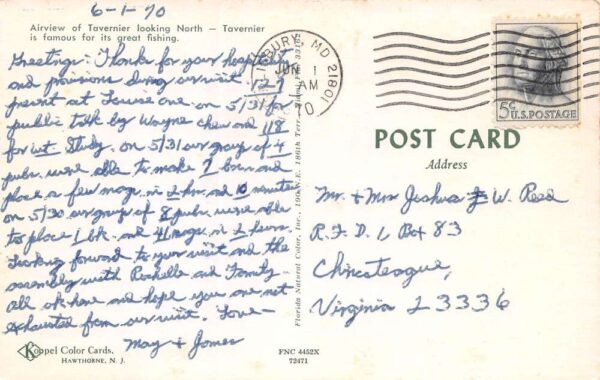 6-1-70
Airview of Tavernier looking North — Tavernier
is famous for its great fishing.
Greetings: Thanks for your hospitality
and provisions during our visit. 127
present at Louise one on 5/31 for
public talk by Wayne and 118
for wt Study. on 5/31 our group of 4
pubs. were able to make 7 and
place a few mags. in 2 hrs. and 10 minutes
on 5/30 our group of 8 pubs. were able
to place 1 bk. and 41 mags. in 2 hours.
Looking forward to your visit and the
assembly with Rochelle and Family-
All ok here and hope you are not
exhausted from our visit. Love-
May + James
Koppel Color Cards.
HAWTHORNE, N. J.
FNC 4452X
72471
Florida Natural Color, Inc., 190 N.E. 186th Terr., 33162
SALISBURY, MD 21801
JUN 1
AM
5¢ U.S. POSTAGE
POST CARD
Address
Mr. + Mrs Joshua W. Reed
R.F.D. 1 Box 83
Chincoteague,
Virginia 23336